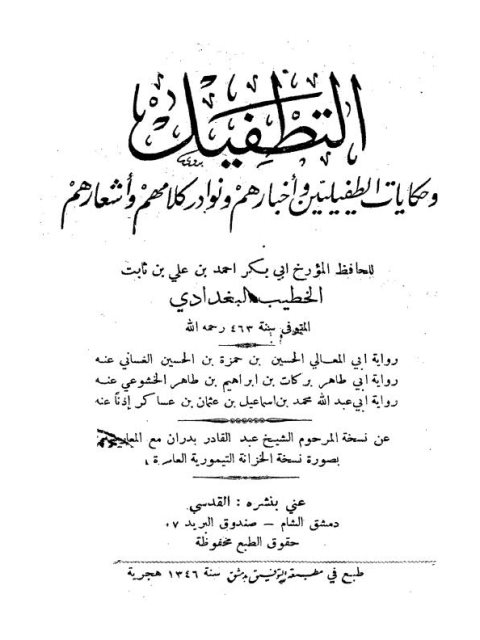 التطفيل
وحكايات الطفيليين وأخبارهم ونوادر كلامهم وأشعارهم
للحافظ المؤرخ ابي بكر احمد بن علي بن ثابت
الخطيب البغدادي
المتوفى سنة ٤٦٣ رحمه الله
رواية ابي المعالي الحسين بن حمزة بن الحسين الغساني عنه
رواية ابي طاهر بركات بن ابراهيم بن طاهر الخشوعي عنه
رواية ابي عبد الله محمد بن اسماعيل بن عثمان بن عساكر إذناً عنه
عن نسخة المرحوم الشيخ عبد القادر بدران مع
بصورة نسخة الخزانة التيمورية العامرة
عني بنشره : القدسي
دمشق الشام – صندوق البريد ٠٧
حقوق الطبع محفوظة
طبع في مطبعة التوفيق بدمشق سنة ١٣٤٦ هجرية